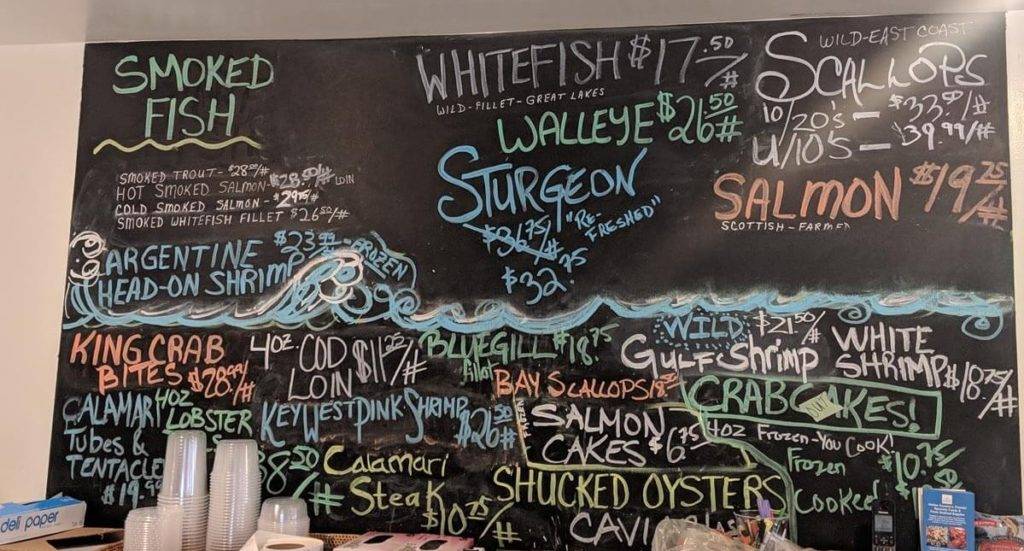 SMOKED
FISH
SMOKED TROUT - $28.00/#
HOT SMOKED SALMON - $28.00/# LOIN
COLD SMOKED SALMON - $29.75/#
SMOKED WHITEFISH FILLET $26.50/#
ARGENTINE $23
HEAD-ON SHRIMP
FROZEN
WHITEFISH $17.50/#
WILD-FILLET-GREAT LAKES
WALLEYE $26.50#
STURGEON
$36.75/#
"RE-
FRESHED"
$32.75
WILD-EAST COAST
SCALLOPS
10/20's - $33.00/#
U/10's - $39.99/#
SALMON $19.75/#
SCOTTISH-FARMED
KING CRAB
BITES $28.99/#
4oz. COD
LOIN $11.22/#
BLUEGILL $18.75
fillet
WILD $21.50/#
Gulf Shrimp
WHITE
SHRIMP $18.75/#
BAY SCALLOPS
CALAMARI
Tubes &
TENTACLE
$19.99
4oz
LOBSTER
38.50
#
KEY WEST PINK SHRIMP
$26.50#
SALMON
CAKES $6.75
CRAB CAKES!
4oz Frozen-You Cook!
Frozen
Cooked
$10.75/
Calamari
Steak $10.75/#
SHUCKED OYSTERS
CAVI
deli paper